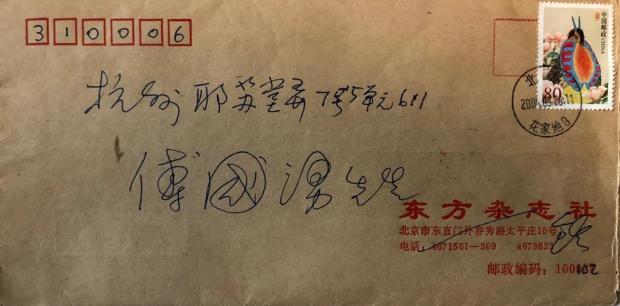 310006
杭州 耶苏堂弄 7号5单元 611
傅国涌先生
中国邮政 CHINA
80
北
花家地3
东方杂志社
北京市东直门外春秀路太平庄10号
电话：4671561—369 4673623
邮政编码：100102